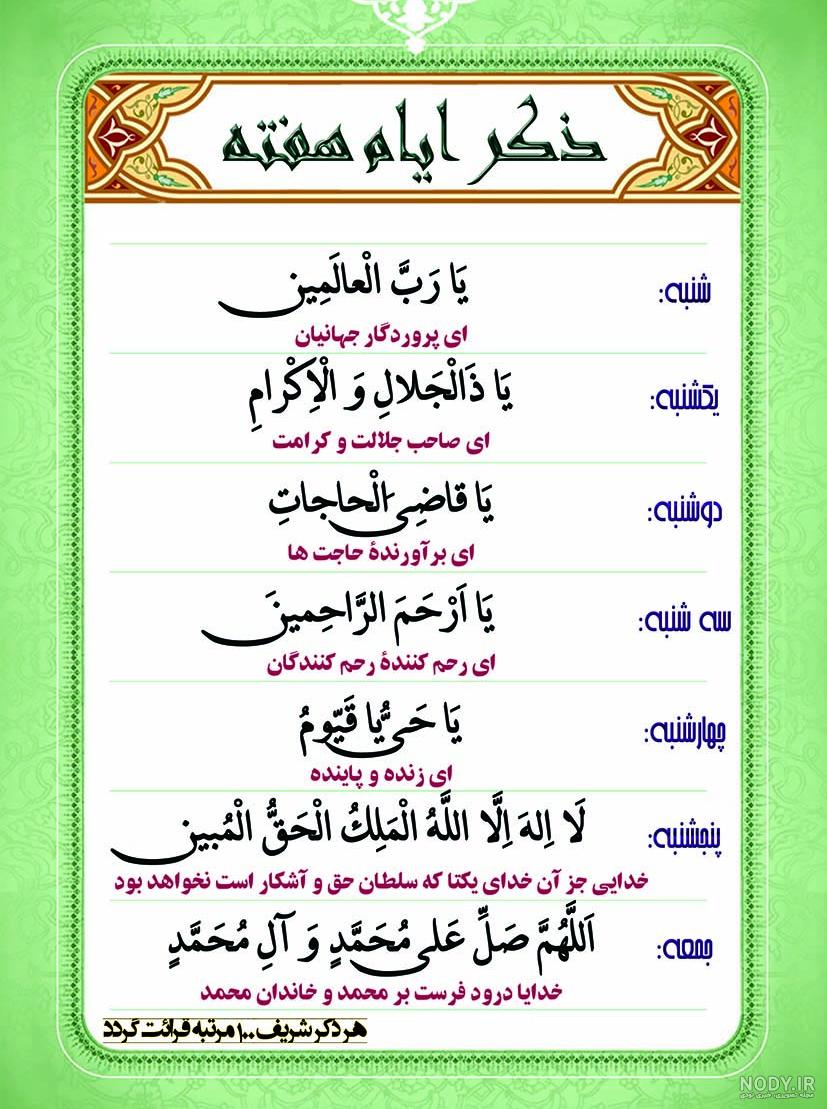 ذکر ایام هفته
شنبه:
یَا رَبَّ الْعالَمِین
ای پروردگار جهانیان
یکشنبه:
یَا ذَالْجَلالِ وَ الْاِکْرامِ
ای صاحب جلالت و کرامت
دوشنبه:
یَا قاضِیَ الْحاجاتِ
ای برآورندۀ حاجت ها
سه شنبه:
یَا اَرْحَمَ الرَّاحِمینَ
ای رحم کنندۀ رحم کنندگان
چهارشنبه:
یَا حَیُّ یا قَیّومُ
ای زنده و پاینده
پنجشنبه:
لَا اِلهَ اِلَّا اللَّهُ الْمَلِکُ الْحَقُّ الْمُبین
خدایی جز آن خدای یکتا که سلطان حق و آشکار است نخواهد بود
جمعه:
اَللَّهُمَّ صَلِّ عَلی مُحَمَّدٍ وَ آلِ مُحَمَّدٍ
خدایا درود فرست بر محمد و خاندان محمد
هر ذکر شریف ۱۰۰ مرتبه قرائت گردد
NODY.IR
مجله تصویری، خبری نودی